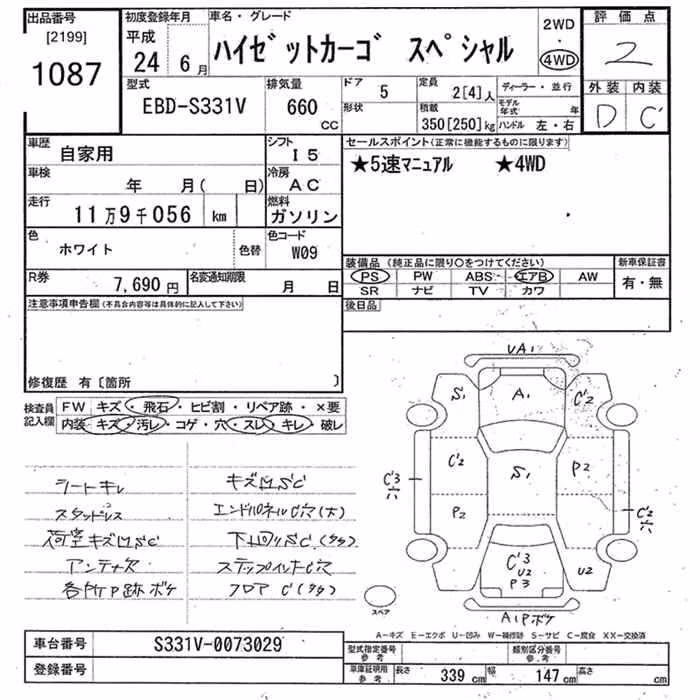 出品番号
[2199]
1087
初度登録年月
平成
24 6月
車名・グレード
ハイゼットカーゴ スペシャル
2WD
・
4WD
評価点
2
外装 内装
D C'
型式
EBD-S331V
排気量
660 CC
ドア 5
形状
定員 2[4]人
積載 350[250]kg
ディーラー・並行
モデル年式 年
ハンドル 左・右
車歴 自家用
シフト I5
車検 年 月( 日)
冷房 AC
走行 11万9千056 km
燃料 ガソリン
色 ホワイト 色替
色コード W09
R券 7,690円
名変通知期限 月 日
セールスポイント(正常に機能するものに限ります)
★5速マニュアル ★4WD
装備品(純正品に限り○をつけてください)
PS PW ABS エアB AW
SR ナビ TV カワ
新車保証書
有・無
後日品
注意事項申告欄(不具合内容等は具体的に記入して下さい)
修復歴 有〔箇所 〕
検査員記入欄
FW キズ・飛石・ヒビ割・リペア跡・×要
内装 キズ・汚レ・コゲ・穴・スレ・キレ・破レ
シートキレ
スタッドレス
荷室キズ凹SC
アンテナ欠
各所P跡ボケ
キズ凹SC
エンドパネルC穴(大)
下回りSC(多々)
ステップイントC穴
フロアC(多々)
UA1
S1
A1
C'2
C'2
S1
P2
C'3
穴
C'2
穴
P2
C'3
U2
P3
U2
A1Pボケ
スペア
A-キズ E-エクボ U-凹み W-補修跡 S-サビ C-腐食 XX-交換済
車台番号 S331V-0073029
登録番号
型式指定番号 参考
類別区分番号 参考
車庫証明用 参考
長さ 339 cm 幅 147 cm 高さ cm